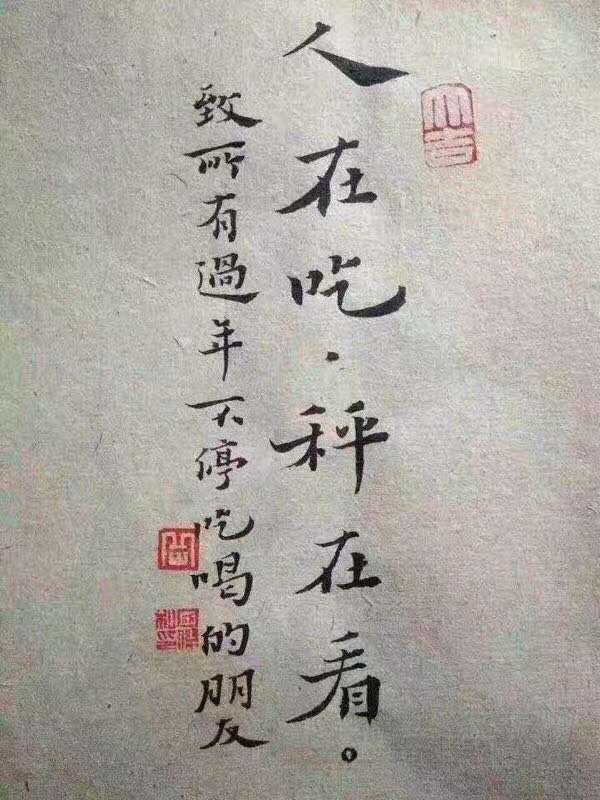 人在吃.秤在看。
致所有過年不停吃喝的朋友